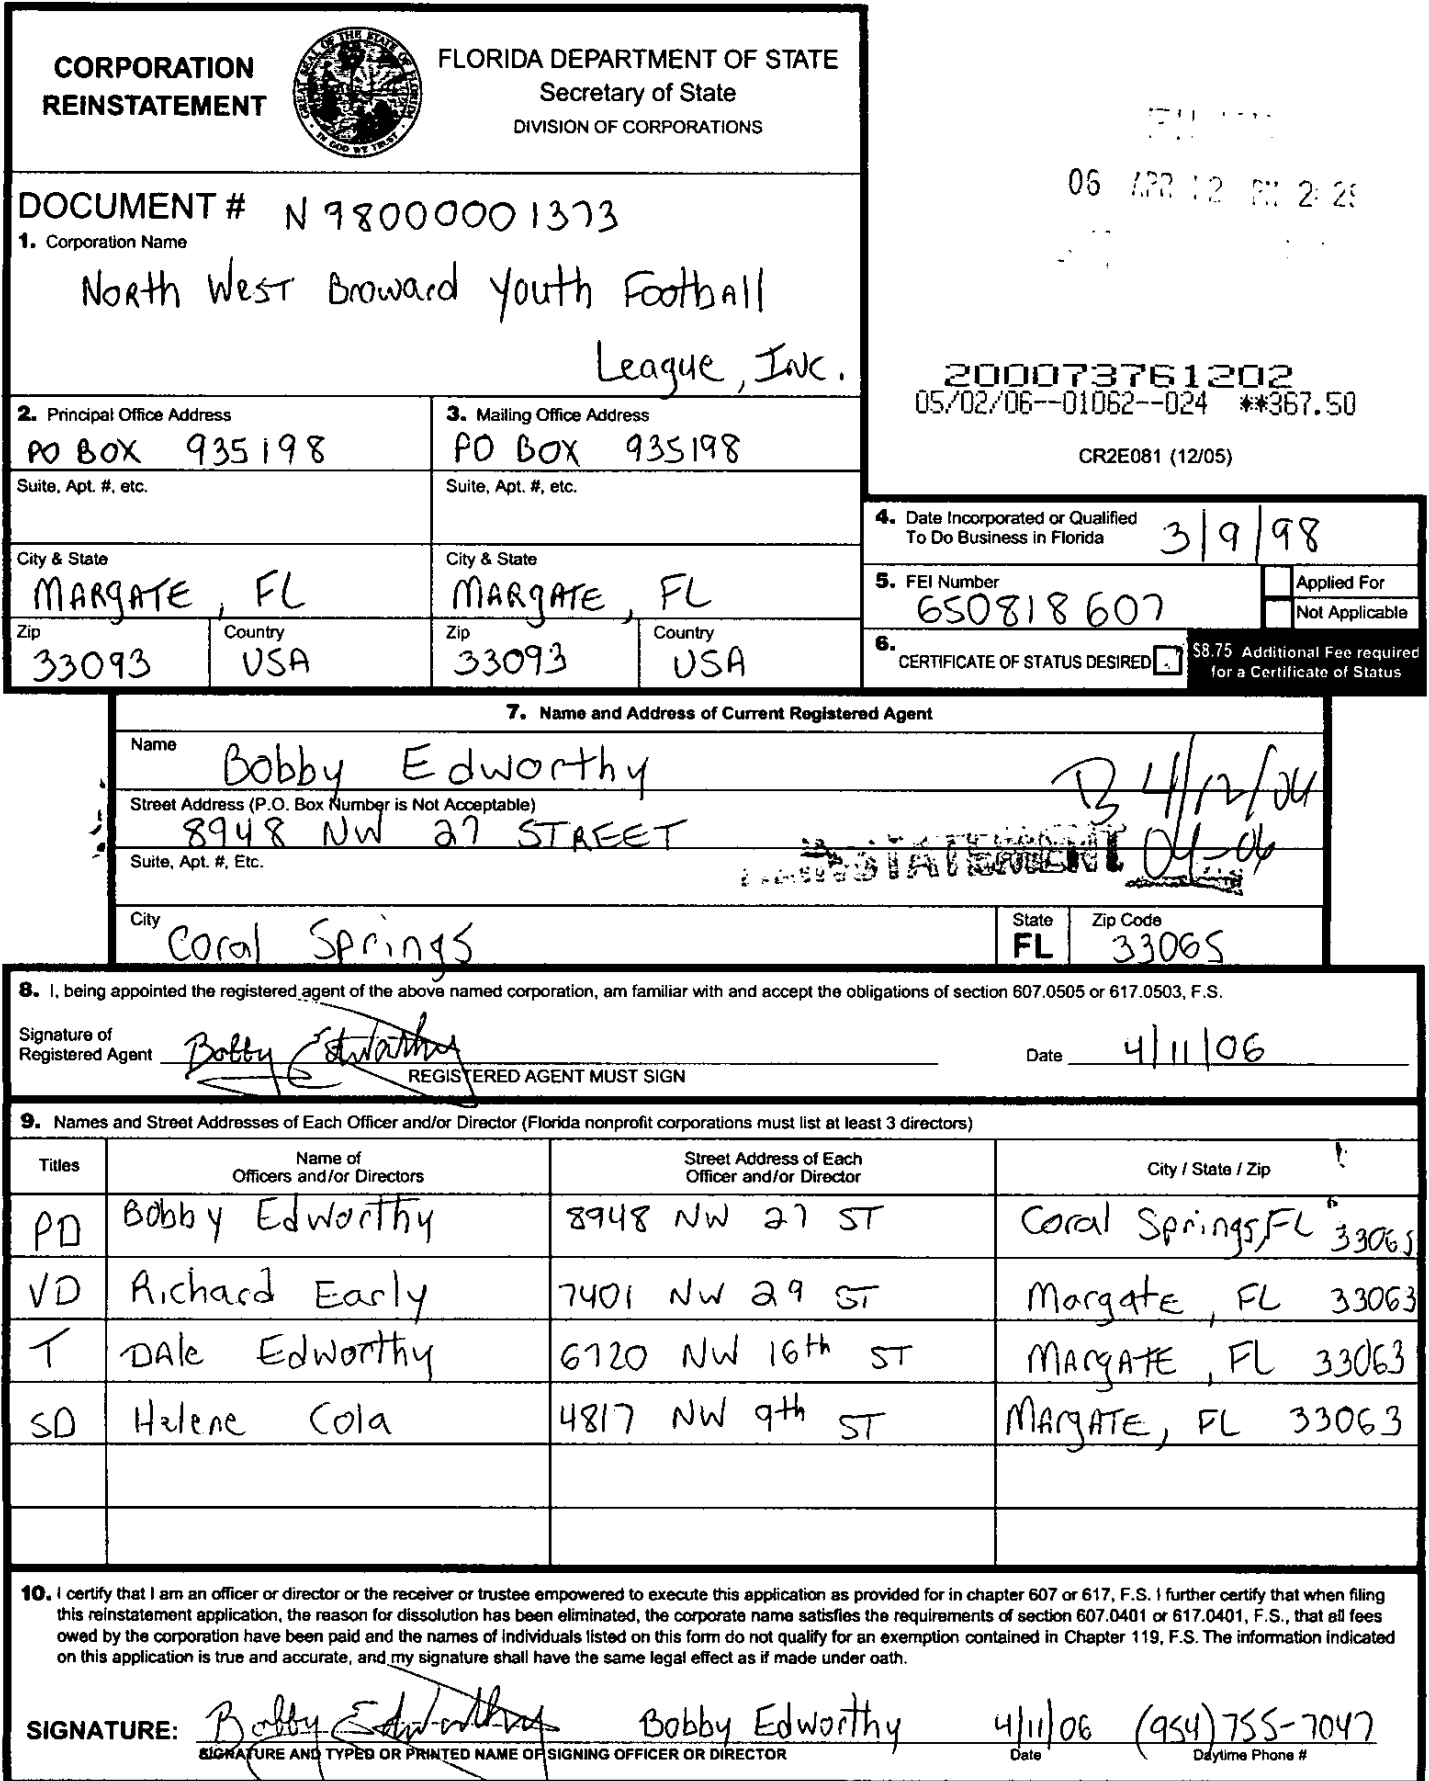 CORPORATION
REINSTATEMENT
GREAT SEAL OF THE STATE OF FLORIDA
IN GOD WE TRUST
FLORIDA DEPARTMENT OF STATE
Secretary of State
DIVISION OF CORPORATIONS
06 APR 12 PM 2:25
DOCUMENT # N98000001373
1. Corporation Name
North West Broward Youth Football
League, Inc.
200073761202
05/02/06--01062--024 **367.50
CR2E081 (12/05)
2. Principal Office Address
PO BOX 935198
3. Mailing Office Address
PO BOX 935198
Suite, Apt. #, etc.
Suite, Apt. #, etc.
City & State
MARGATE, FL
City & State
MARGATE, FL
Zip
33093
Country
USA
Zip
33093
Country
USA
4. Date Incorporated or Qualified
To Do Business in Florida
3/9/98
5. FEI Number
650818607
Applied For
Not Applicable
6. CERTIFICATE OF STATUS DESIRED
$8.75 Additional Fee required
for a Certificate of Status
7. Name and Address of Current Registered Agent
Name
Bobby Edworthy
B 4/12/06
Street Address (P.O. Box Number is Not Acceptable)
8948 NW 27 STREET
REINSTATEMENT 04-06
Suite, Apt. #, Etc.
City
Coral Springs
State
FL
Zip Code
33065
8. I, being appointed the registered agent of the above named corporation, am familiar with and accept the obligations of section 607.0505 or 617.0503, F.S.
Signature of
Registered Agent Bobby Edworthy
Date 4/11/06
REGISTERED AGENT MUST SIGN
9. Names and Street Addresses of Each Officer and/or Director (Florida nonprofit corporations must list at least 3 directors)
Titles
Name of
Officers and/or Directors
Street Address of Each
Officer and/or Director
City / State / Zip
PD Bobby Edworthy 8948 NW 27 ST Coral Springs, FL 33065
VD Richard Early 7401 NW 29 ST Margate, FL 33063
T DAle Edworthy 6720 NW 16th ST MARGATE, FL 33063
SD Helene Cola 4817 NW 9th ST MARGATE, FL 33063
10. I certify that I am an officer or director or the receiver or trustee empowered to execute this application as provided for in chapter 607 or 617, F.S. I further certify that when filing
this reinstatement application, the reason for dissolution has been eliminated, the corporate name satisfies the requirements of section 607.0401 or 617.0401, F.S., that all fees
owed by the corporation have been paid and the names of individuals listed on this form do not qualify for an exemption contained in Chapter 119, F.S. The information indicated
on this application is true and accurate, and my signature shall have the same legal effect as if made under oath.
SIGNATURE: Bobby Edworthy Bobby Edworthy 4/11/06 (954) 755-7047
SIGNATURE AND TYPED OR PRINTED NAME OF SIGNING OFFICER OR DIRECTOR
Date
Daytime Phone #